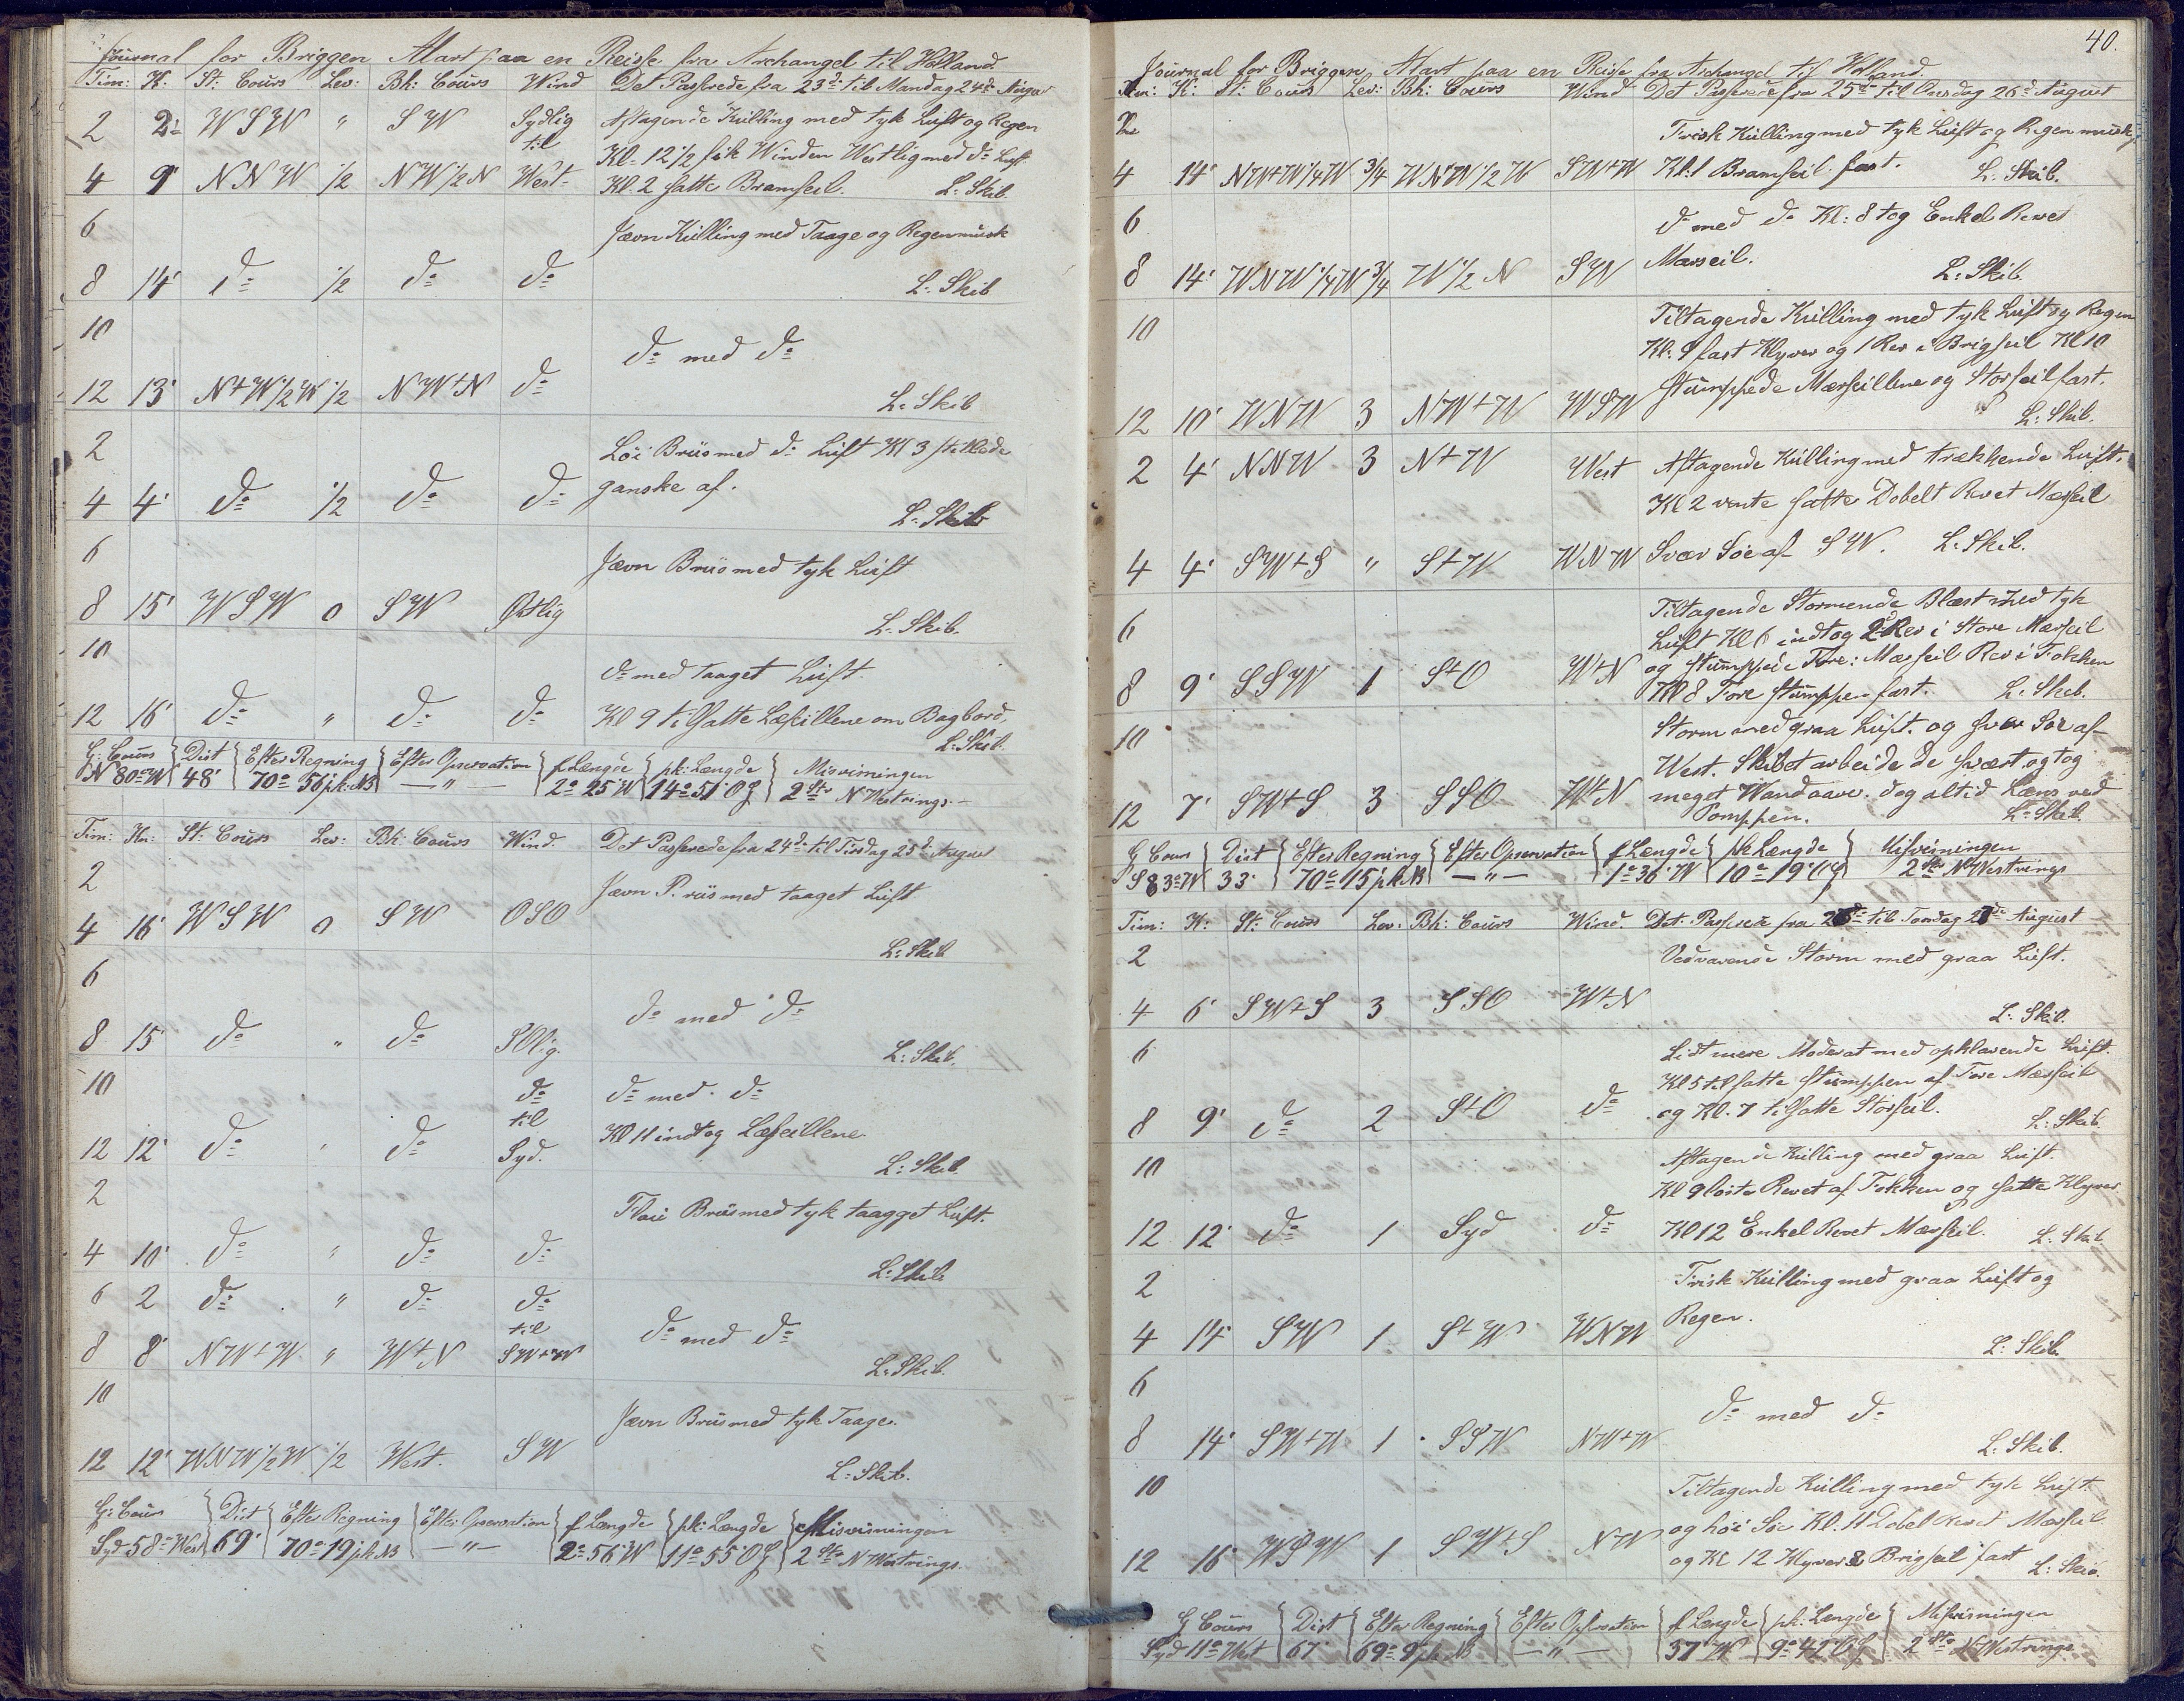 Journal for Briggen Alart paa en Reise fra Archangel til Holland
Tim: K: St: Cours Lev: Bh: Cours Wind Det Passerede fra 23de til Mandag 24de August
2 2' WSW " SW Sydlig Aftagende Kulling med tyk Luft og Regen
til Kl. 12 1/2 fik Winden Westlig med do Luft
4 9' NNW 1/2 NW 1/2 N West- Kl. 2 satte Bramseil. L: Skib.
6 Jævn Kulling med Taage og Regenmusk
8 14' do 1/2 do do L: Skib
10 do med do
12 13' N+W 1/2 W 1/2 NW+N do L: Skib
2 Løi Briis med do Luft Kl 3 stillede
4 4' do 1/2 do do ganske af.
L: Skib
6 Jævn Briis med tyk Luft
8 15' WSW 0 SW Østlig L: Skib.
10 do med taaget Luft.
12 16' do " do do Kl 9 tilsatte Læseillene om Bagbord.
L: Skib.
G: Cours Dist Efter Regning Efter Opservation f Længde pk: Længde Misvisningen
N 80° W 48' 70° 56' pk: NB — " — 2° 25' W 14° 51' OG 2 Str NWestrings.-
Tim: Kn: St: Cours Lev: Bh: Cours Wind. Det Passerede fra 24de til Tirsdag 25de August
2 Jævn Briis med taaget Luft
4 16' WSW 0 SW OSO
L: Skib
6
do med do
8 15' do " do SOlig. L: Skib.
10 do do med do
12 12' do " do til Kl 11 indtog Læseillene
Syd. L: Skib.
2 Flau Briis med tyk taagget Luft.
4 10' do " do do
L: Skib
6 2 do " do do
til do med do
8 8' NW+W " W+N SW+W L: Skib.
10 Jævn Briis med tyk Taage.
12 12' WNW 1/2 W 1/2 West. SW
L: Skib.
G: Cours Dist Efter Regning Efter Opservation f Længde pk: Længde Misvisningen
Syd 58° West 69' 70° 19' pk NB — " — 2° 56' W 11° 55' OG 2 Str NWestrings.
40.
Journal for Briggen Alart paa en Reise fra Archangel til Holland.
Kn: K: St: Cours Lev: Bh: Cours Wind Det Passerede fra 25de til Onsdag 26de August
2 Frisk Kulling med tyk Luft og Regen musk,
4 14' NW+W 1/4 W 3/4 WNW 1/2 W SW+W Kl: 1 Bramseil. fast. L: Skib.
6 do med do Kl: 8 tog Enkel Revet
8 14' WNW 1/4 W 3/4 W 1/2 N SW Mærseil. L: Skib
10 Tiltagende Kulling med tyk Luft og Regen
Kl: 9 fast Klyver og 1 Rev i Brigseil Kl 10
12 10' WNW 3 NW+W WSW stumppede Mærseillene og Storseil fast.
L: Skib.
2 4' NNW 3 N+W West Aftagende Kulling med trækkende Luft.
Kl 2 vente satte Dobelt Revet Mærseil
4 4' SW+S " S+W WNW Svær Søe af SW. L: Skib.
6 Tiltagende Stormende Blæst med tyk
Luft Kl 6 indtog 2 Rev i Store Mærseil
og stumppede Fore: Mærseil Rev i Fokken
8 9' SSW 1 S+O W+N Kl 8 Fore stumppen fast. L: Skib.
10 Storm med graa Luft. og svær Søe af
West. Skibet arbeidede svært og tog
12 7' SW+S 3 SSO W+N meget Wand over. dog altid Læns ved
Pomppen. L: Skib.
G Cours Dist Efter Regning Efter Opservation f Længde pk Længde Misvisningen
S 83° W 33' 70° 15' pk NB — " — 1° 36' W 10° 19' OG 2 Str NWestrings
Tim: K: St: Cours Lev: Bh: Cours Wind. Det Passerede fra 26de til Torsdag 27de August
2 Vedvarende Storm med graa Luft.
4 6' SW+S 3 SSO W+N
L: Skib.
6 Lidt mere Moderat med opklarende Luft.
Kl 5 tilsatte stumppen af Fore Mærseil
8 9' do 2 S+O do og Kl. 7 tilsatte Storseil. L: Skib.
10 Aftagende Kulling med graa Luft.
Kl 9 løste Revet af Fokken og satte Klyver
12 12' do 1 Syd do Kl 12 Enkel Revet Mærseil. L: Skib
2 Frisk Kulling med graa Luft og
4 14' SW 1 S+W WNW Regen.
L: Skib.
6
do med do
8 14' SW+W 1 SSW NW+W L: Skib.
10 Tiltagende Kulling med tyk Luft
og høi Søe Kl. 11 Dobel Revet Mærseil.
12 16' WSW 1 SW+S NW og Kl 12 Klyver & Brigseil fast L: Skib.
G Cours Dist Efter Regning Efter Opservation f Længde pk: Længde Misvisningen
Syd 11° West 67' 69° 9' pk NB — " — 37' W 9° 42' OG 2 Str NWestrings.